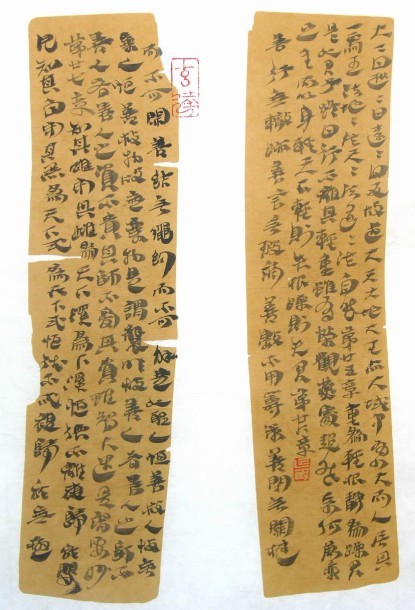 大=曰逝=曰遠=曰反故道大天大地大王亦大域中有四大而人居其
一焉人法地=法天=法道=法自然第廿五章重為輕根靜為躁君
是以君子終日行不離其輜重雖有榮觀燕處超然奈何萬乘
之主而以身輕天下輕則失根躁則失君第廿六章
善行無轍跡善言無瑕讁善數不用籌策善閉無關楗
而不可開善結無繩約而不可解是以聖人恒善救人故無
棄人恒善救物故無棄物是謂襲明故善人者善人之師不
善人者善人之資不貴其師不愛其資雖智大迷是謂要妙
第廿七章知其雄守其雌為天下溪為天下溪恒德不離復歸於嬰
兒知其白守其黑為天下式為天下式恒德不忒復歸於無極